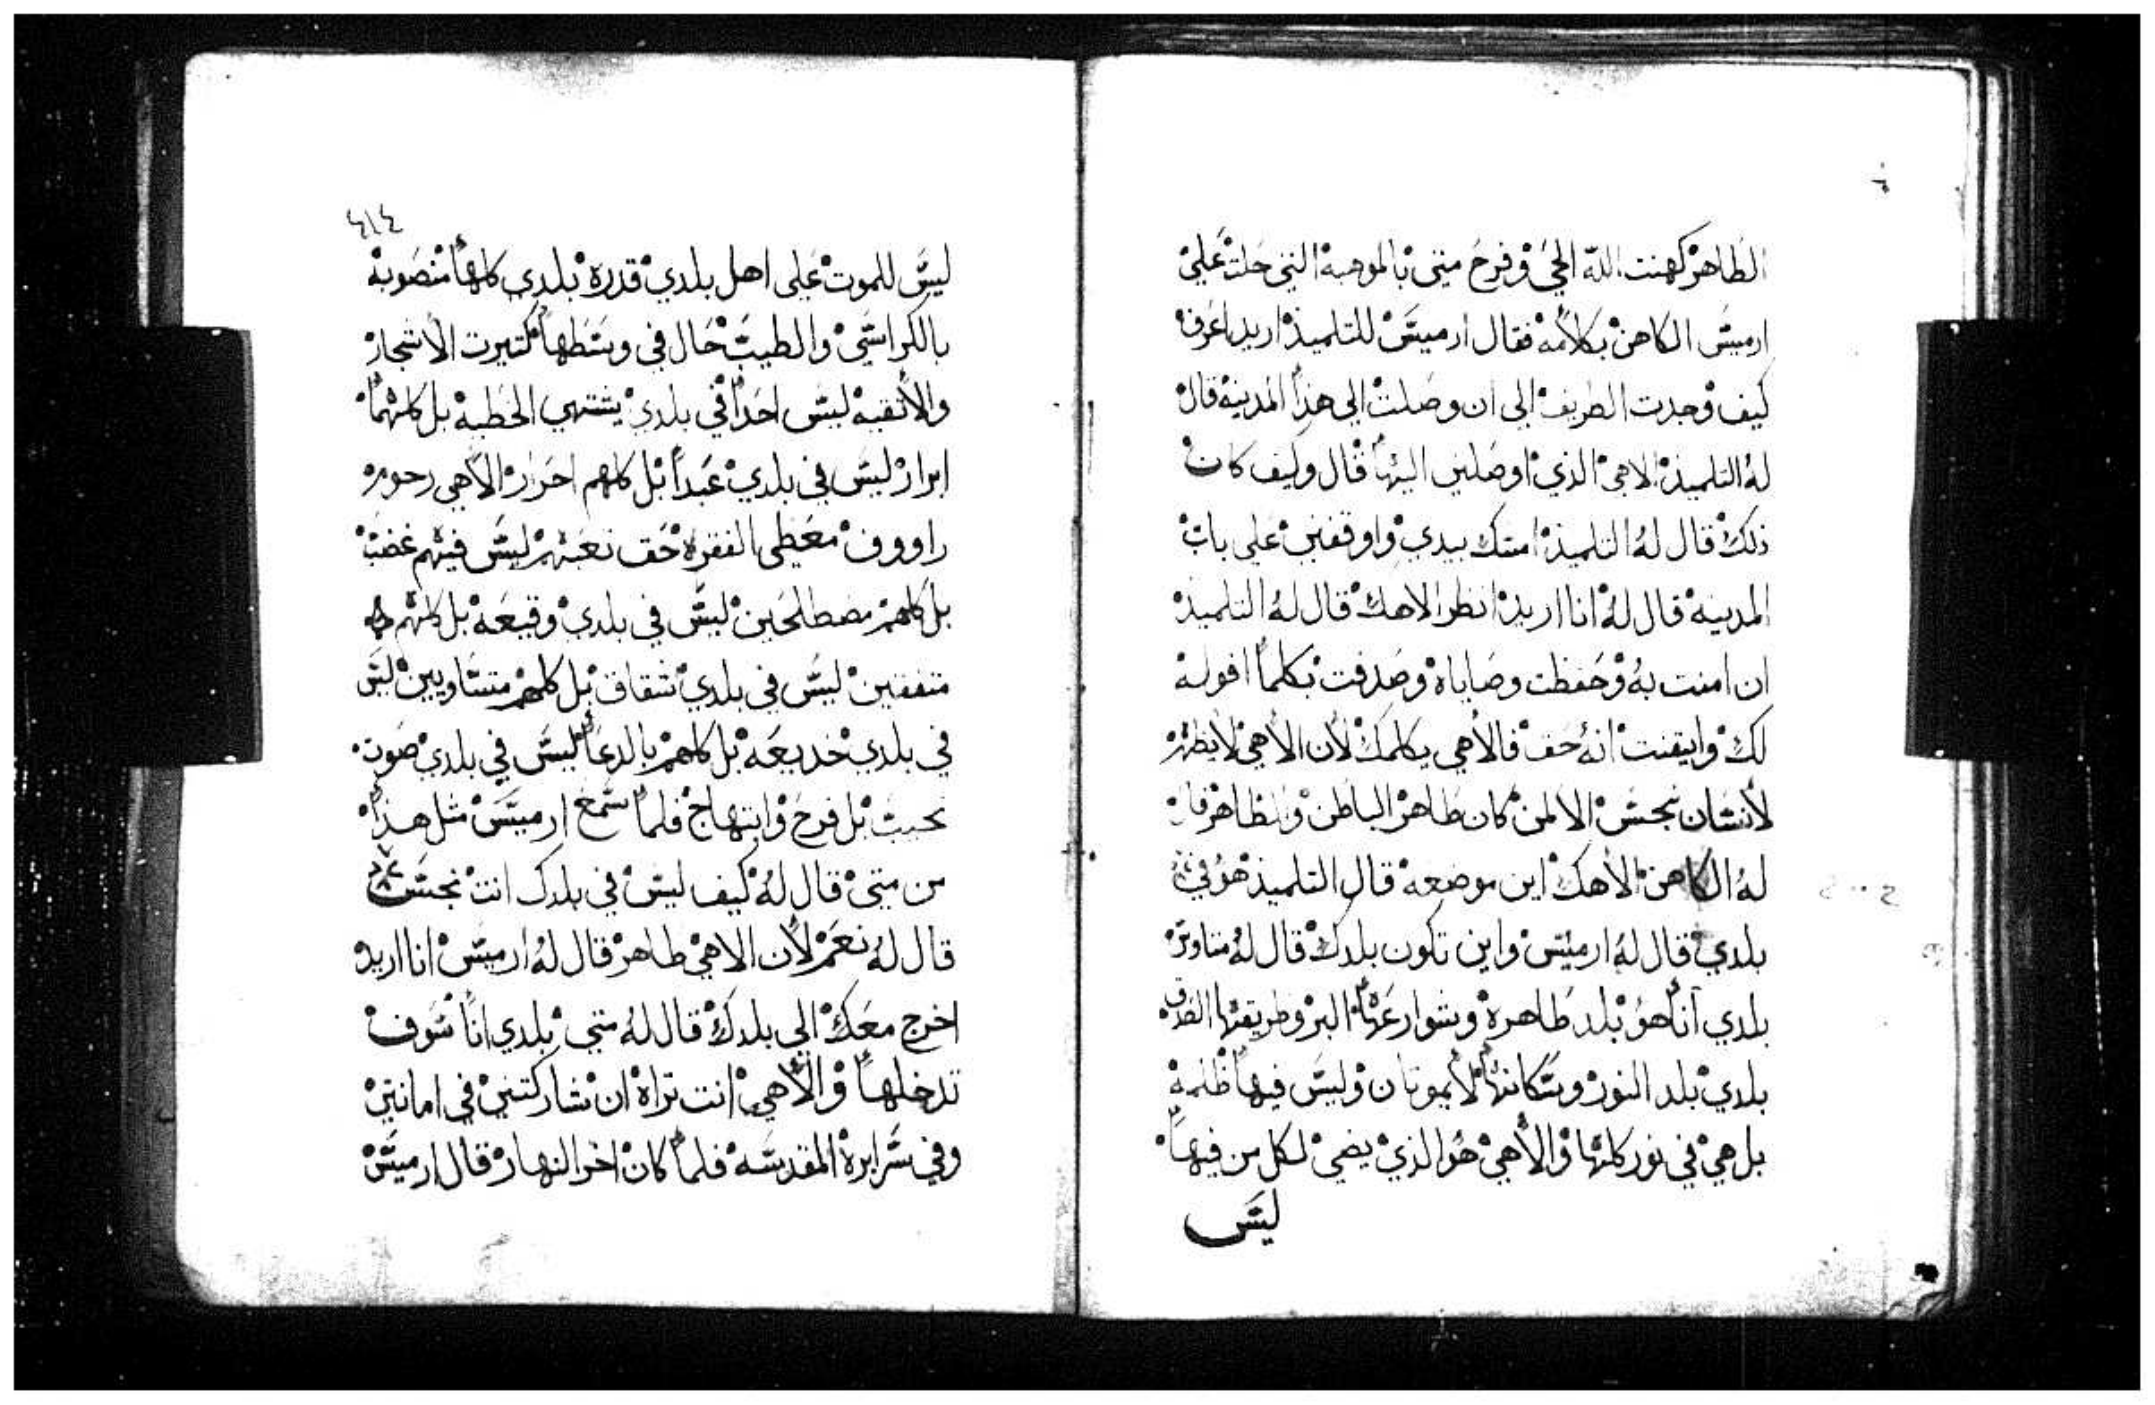 الطاهر كهنت الله الحي وفرح متى بالموهبه التي حلت علي
ارميس الكاهن بكلامه فقال ارميس للتلميذ اريد اعرف
كيف وجدت الطريف الى ان وصلت الى هذا المدينه قال
له التلميذ الاهي الذي اوصلني اليها قال وكيف كان
ذلك قال له التلميذ امسك بيدي واوقفني على باب
المدينه قال له انا اريد انظر الاهك قال له التلميذ
ان امنت به وحفظت وصاياه وصدقت بكلما اقوله
لك وايقنت انه حق فالاهي يكلمك لان الاهي لا يظهر
لانسان نجس الا لمن كان طاهر الباطن والظاهر قال
له الكاهن الاهك اين موضعه قال التلميذ هو في
بلدي قال له ارميس واين تكون بلدك قال له متاوس
بلدي انا هو بلد طاهرة وشوارعها البر وطريقتها
بلدي بلد النور وسكانها لا يموتان وليس فيها ظلمة
بل هي في نور كلها والاهي هو الذي يضي لكل من فيها
ليس
٤١٤
ليس للموت على اهل بلدي قدرة بلدي كلها منصوبة
بالكراسي والطيب حال في وسطها كتيرت الاشجار
والانقيه ليس احدا في بلدي يشتهي الخطيه بل كلهم
ابرار ليس في بلدي عبدا بل كلهم احرار الاهي رحوم
راووف معطى الفقره حق تعبهم ليس فيهم غضب
بل كلهم مصطلحين ليس في بلدي وقيعه بل كلهم
متفقين ليس في بلدي شقاق بل كلهم متساويين ليس
في بلدي خديعه بل كلهم بالدعا ليس في بلدي صوت
نحيب بل فرح وابتهاج فلما سمع ارميس مثل هذا
من متى قال له كيف ليس في بلدك انت نجس
قال له نعم لان الاهي طاهر قال له ارميس انا اريد
اخرج معك الى بلدك قال له متي بلدي انا سوف
تدخلها والاهي انت تراه ان شاركتني في امانتي
وفي سرايره المقدسه فلما كان اخر النهار قال ارميس